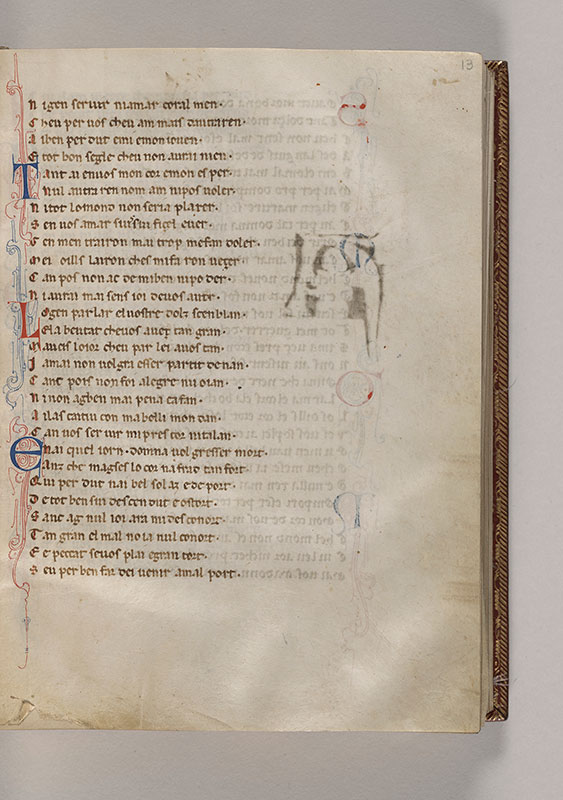 13
N i gen seruir ni amar coral men.
C heu per vos cheu am mais
A i ben perdut e mi e mon iouen.
E tot bon segle cheu non aurai nien.
T ant ai en uos mon cor e mon esper.
N ul autra ren nom am ni pos uoler.
N i tot lo mon no seria plaxer.
S en uos amar
E en men mai trop me fan doler.
M ei oills lairon ches mi fa ron ueger
C an pos non ac de mi ben ni poder.
N i aurai mai sens ioi de uos auer.
L o gen parlar el uostre dolz senblan.
E la beutat che uos auez tan gran.
M aueis lo ior cheu par lei auos tan.
I amai non uolgra esser partir de nan.
C ant pois non foi alegre ni
N i non ag ben mai pena e afan.
A i las caitiu con ma belli mon dan.
C an uos seruir mi pres tor ni talan.
E n ai quel iorn. domna uolgresser mort.
C anz che magses lo cor nafrat tan fort.
Q ui perdut nai bel solaz e deport.
D e tot ben sui descendut e ostort.
S anc ag nul ioi ara mi desconort.
T an gran el mal no ia nul conort.
E e peccat se uos plai e gran tort.
S eu per ben far dei uenir a mal port.